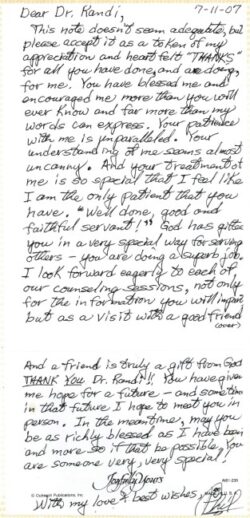 Dear Dr. Randi, 7-11-07
This note doesn't seem adequate, but
please accept it as a token of my
appreciation and heart felt "THANKS"
for all you have done, and are doing,
for me. You have blessed me and
encouraged me more than you will
ever know and far more than my
words can express. Your patience
with me is unparalleled. Your
understanding of me seems almost
uncanny. And your treatment of
me is so special that I feel like
I am the only patient that you
have. "Well done, good and
faithful servant!" God has gifted
you in a very special way for serving
others - you are doing a superb job.
I look forward eagerly to each of
our counseling sessions, not only
for the information you will impart
but as a visit with a good friend
(over)
And a friend is truly a gift from God
THANK YOU Dr. Randi!! You have given
me hope for a future - and sometime
in that future I hope to meet you in
person. In the meantime, may you
be as richly blessed as I have been
and more so if that be possible, You
are someone very, very special!!
Joyfully Yours
© Outreach Publications, Inc.
With my love & best wishes,